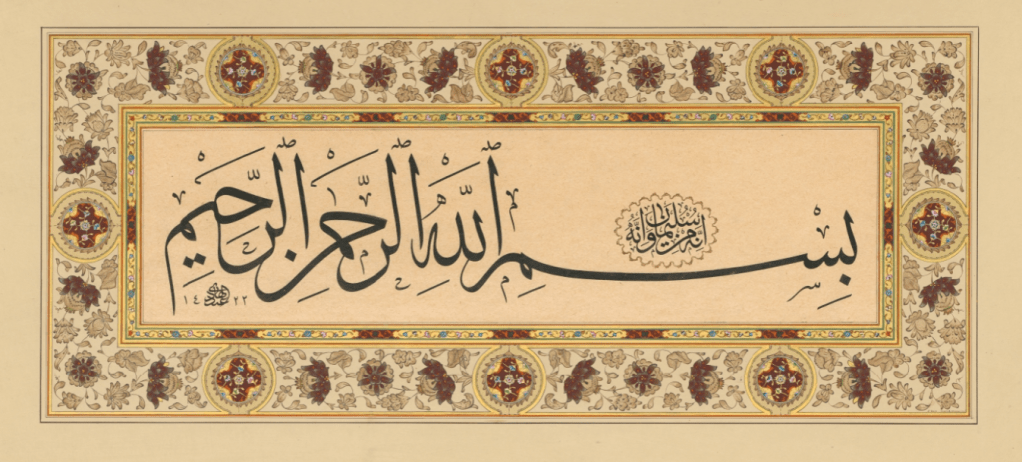 بِسْمِ اللّٰهِ الرَّحْمٰنِ الرَّحِيمِ
إنه من سليمان وإنه
١٤٢٢